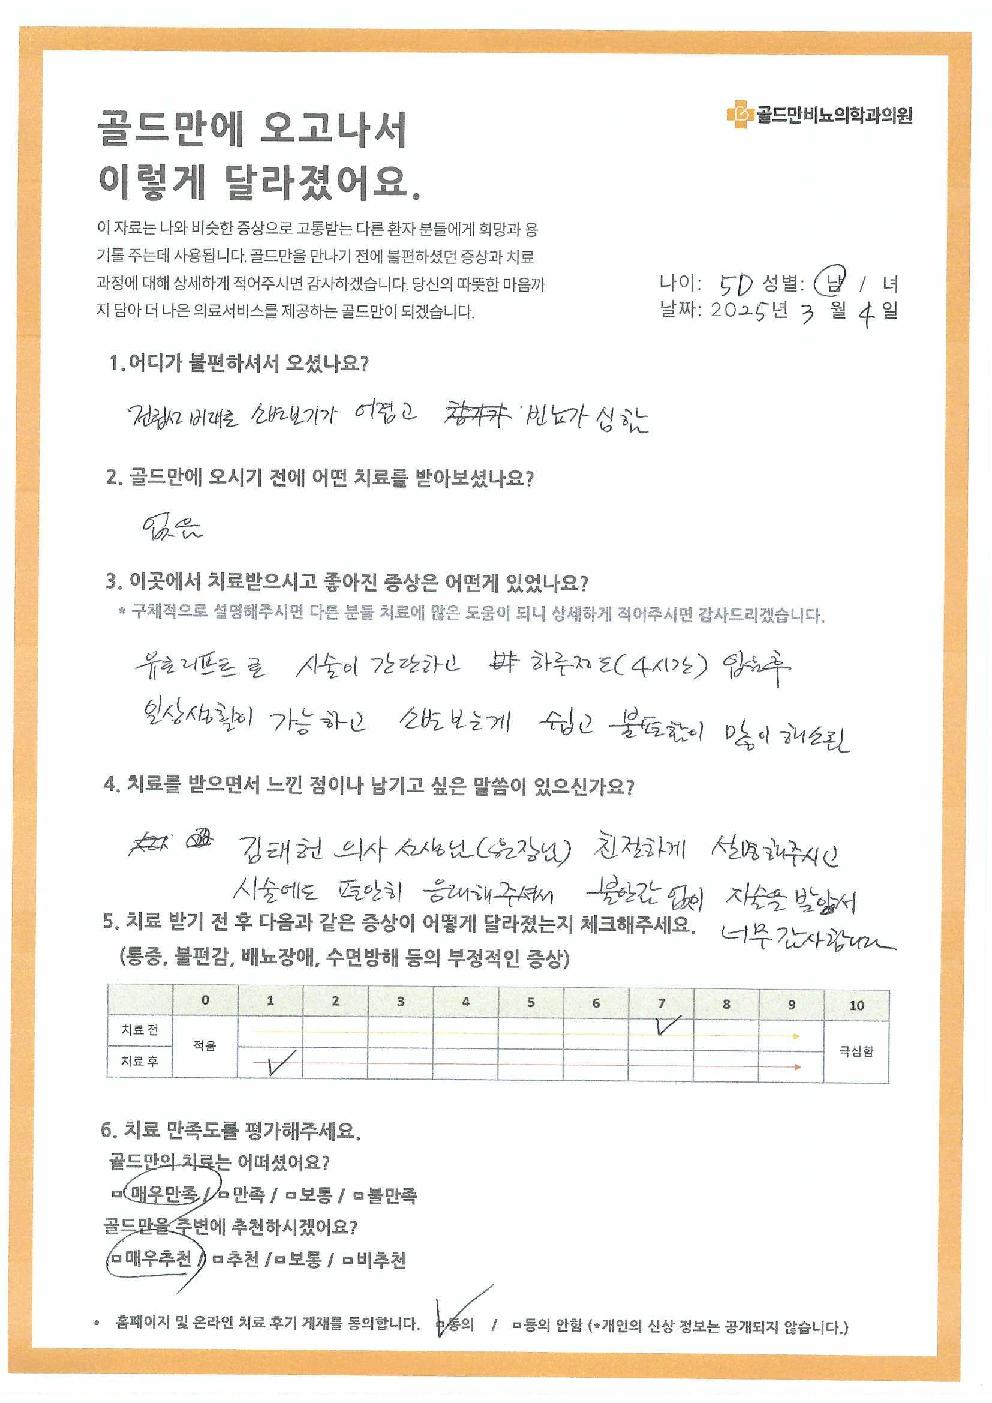 골드만비뇨의학과의원
골드만에 오고나서
이렇게 달라졌어요.
이 자료는 나와 비슷한 증상으로 고통받는 다른 환자 분들에게 희망과 용
기를 주는데 사용됩니다. 골드만을 만나기 전에 불편하셨던 증상과 치료
과정에 대해 상세하게 적어주시면 감사하겠습니다. 당신의 따뜻한 마음까
지 담아 더 나은 의료서비스를 제공하는 골드만이 되겠습니다.
나이: 50 성별: 남 / 녀
날짜: 2025년 3 월 4 일
1.어디가 불편하셔서 오셨나요?
전립선 비대로 소변보기가 어렵고 빈뇨가 심함
2. 골드만에 오시기 전에 어떤 치료를 받아보셨나요?
없음
3. 이곳에서 치료받으시고 좋아진 증상은 어떤게 있었나요?
* 구체적으로 설명해주시면 다른 분들 치료에 많은 도움이 되니 상세하게 적어주시면 감사드리겠습니다.
유로리프트로 시술이 간단하고 하루정도(4시간) 입원후
일상생활이 가능하고 소변보는게 쉽고 불편함이 많이 해소됨
4. 치료를 받으면서 느낀 점이나 남기고 싶은 말씀이 있으신가요?
김태헌 의사 선생님(원장님) 친절하게 설명해주시고
시술에도 편안히 응대해주셔서 불안감 없이 시술을 받았서
너무 감사합니다
5. 치료 받기 전 후 다음과 같은 증상이 어떻게 달라졌는지 체크해주세요.
(통증, 불편감, 배뇨장애, 수면방해 등의 부정적인 증상)
0 1 2 3 4 5 6 7 8 9 10
치료 전 적음 극심함
치료 후
6. 치료 만족도를 평가해주세요.
골드만의 치료는 어떠셨어요?
□ 매우만족 / □ 만족 / □ 보통 / □ 불만족
골드만을 주변에 추천하시겠어요?
□ 매우추천 / □ 추천 / □ 보통 / □ 비추천
* 홈페이지 및 온라인 치료 후기 게재를 동의합니다. □동의 / □동의 안함 (*개인의 신상 정보는 공개되지 않습니다.)